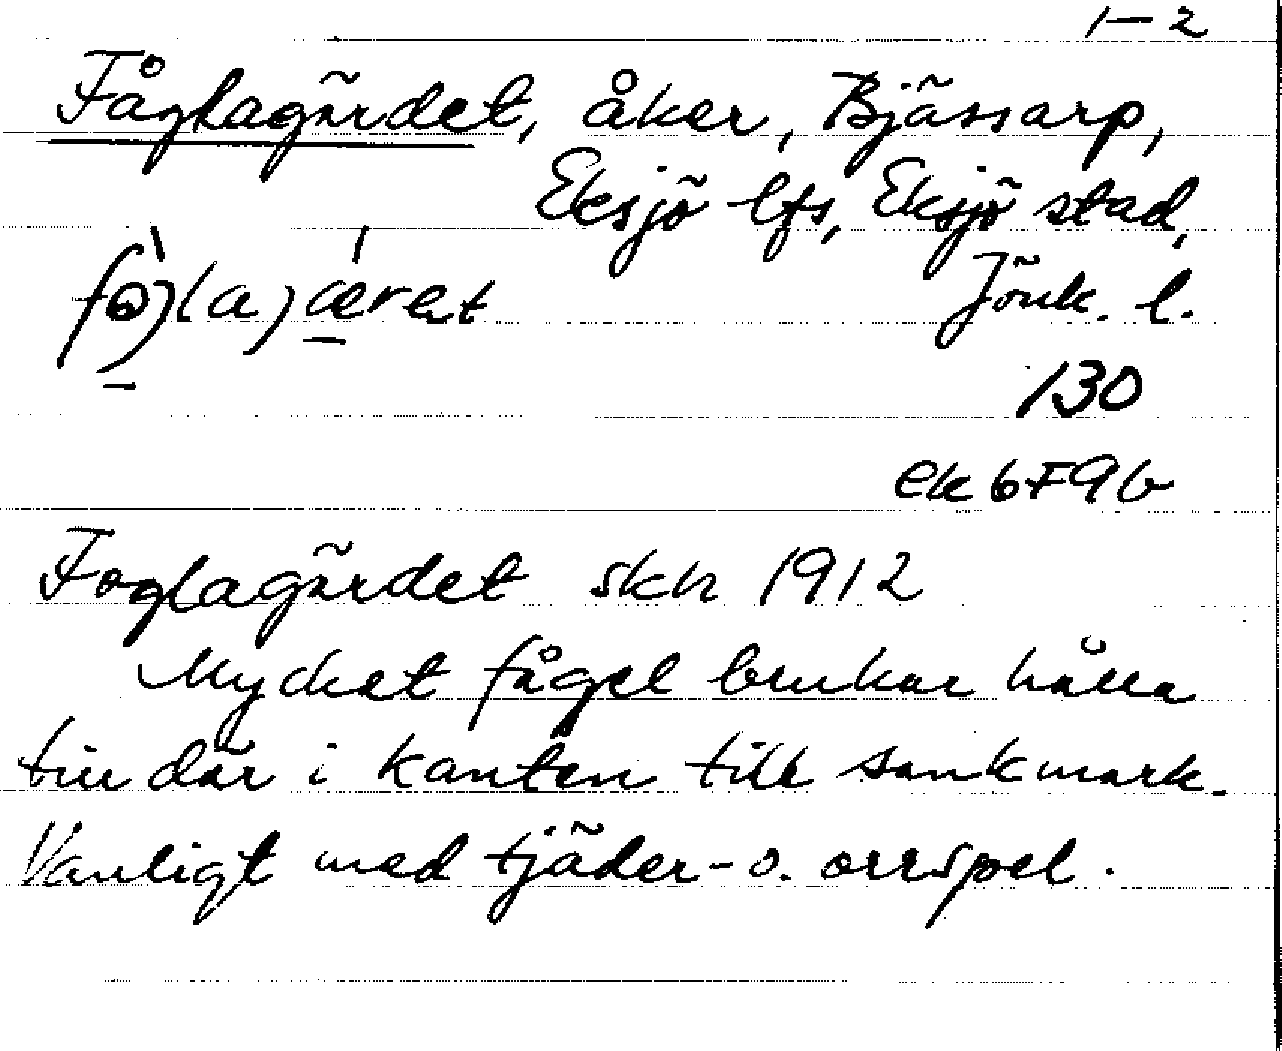 1–2
Fåglagärdet, åker, Bjässarp,
Eksjö lfs, Eksjö stad,
Jönk. l.
130
ek 6F9b
Foglagärdet skh 1912
Mycket fågel brukar hålla
till där i kanten till sankmark.
Vanligt med tjäder- o. orrspel.